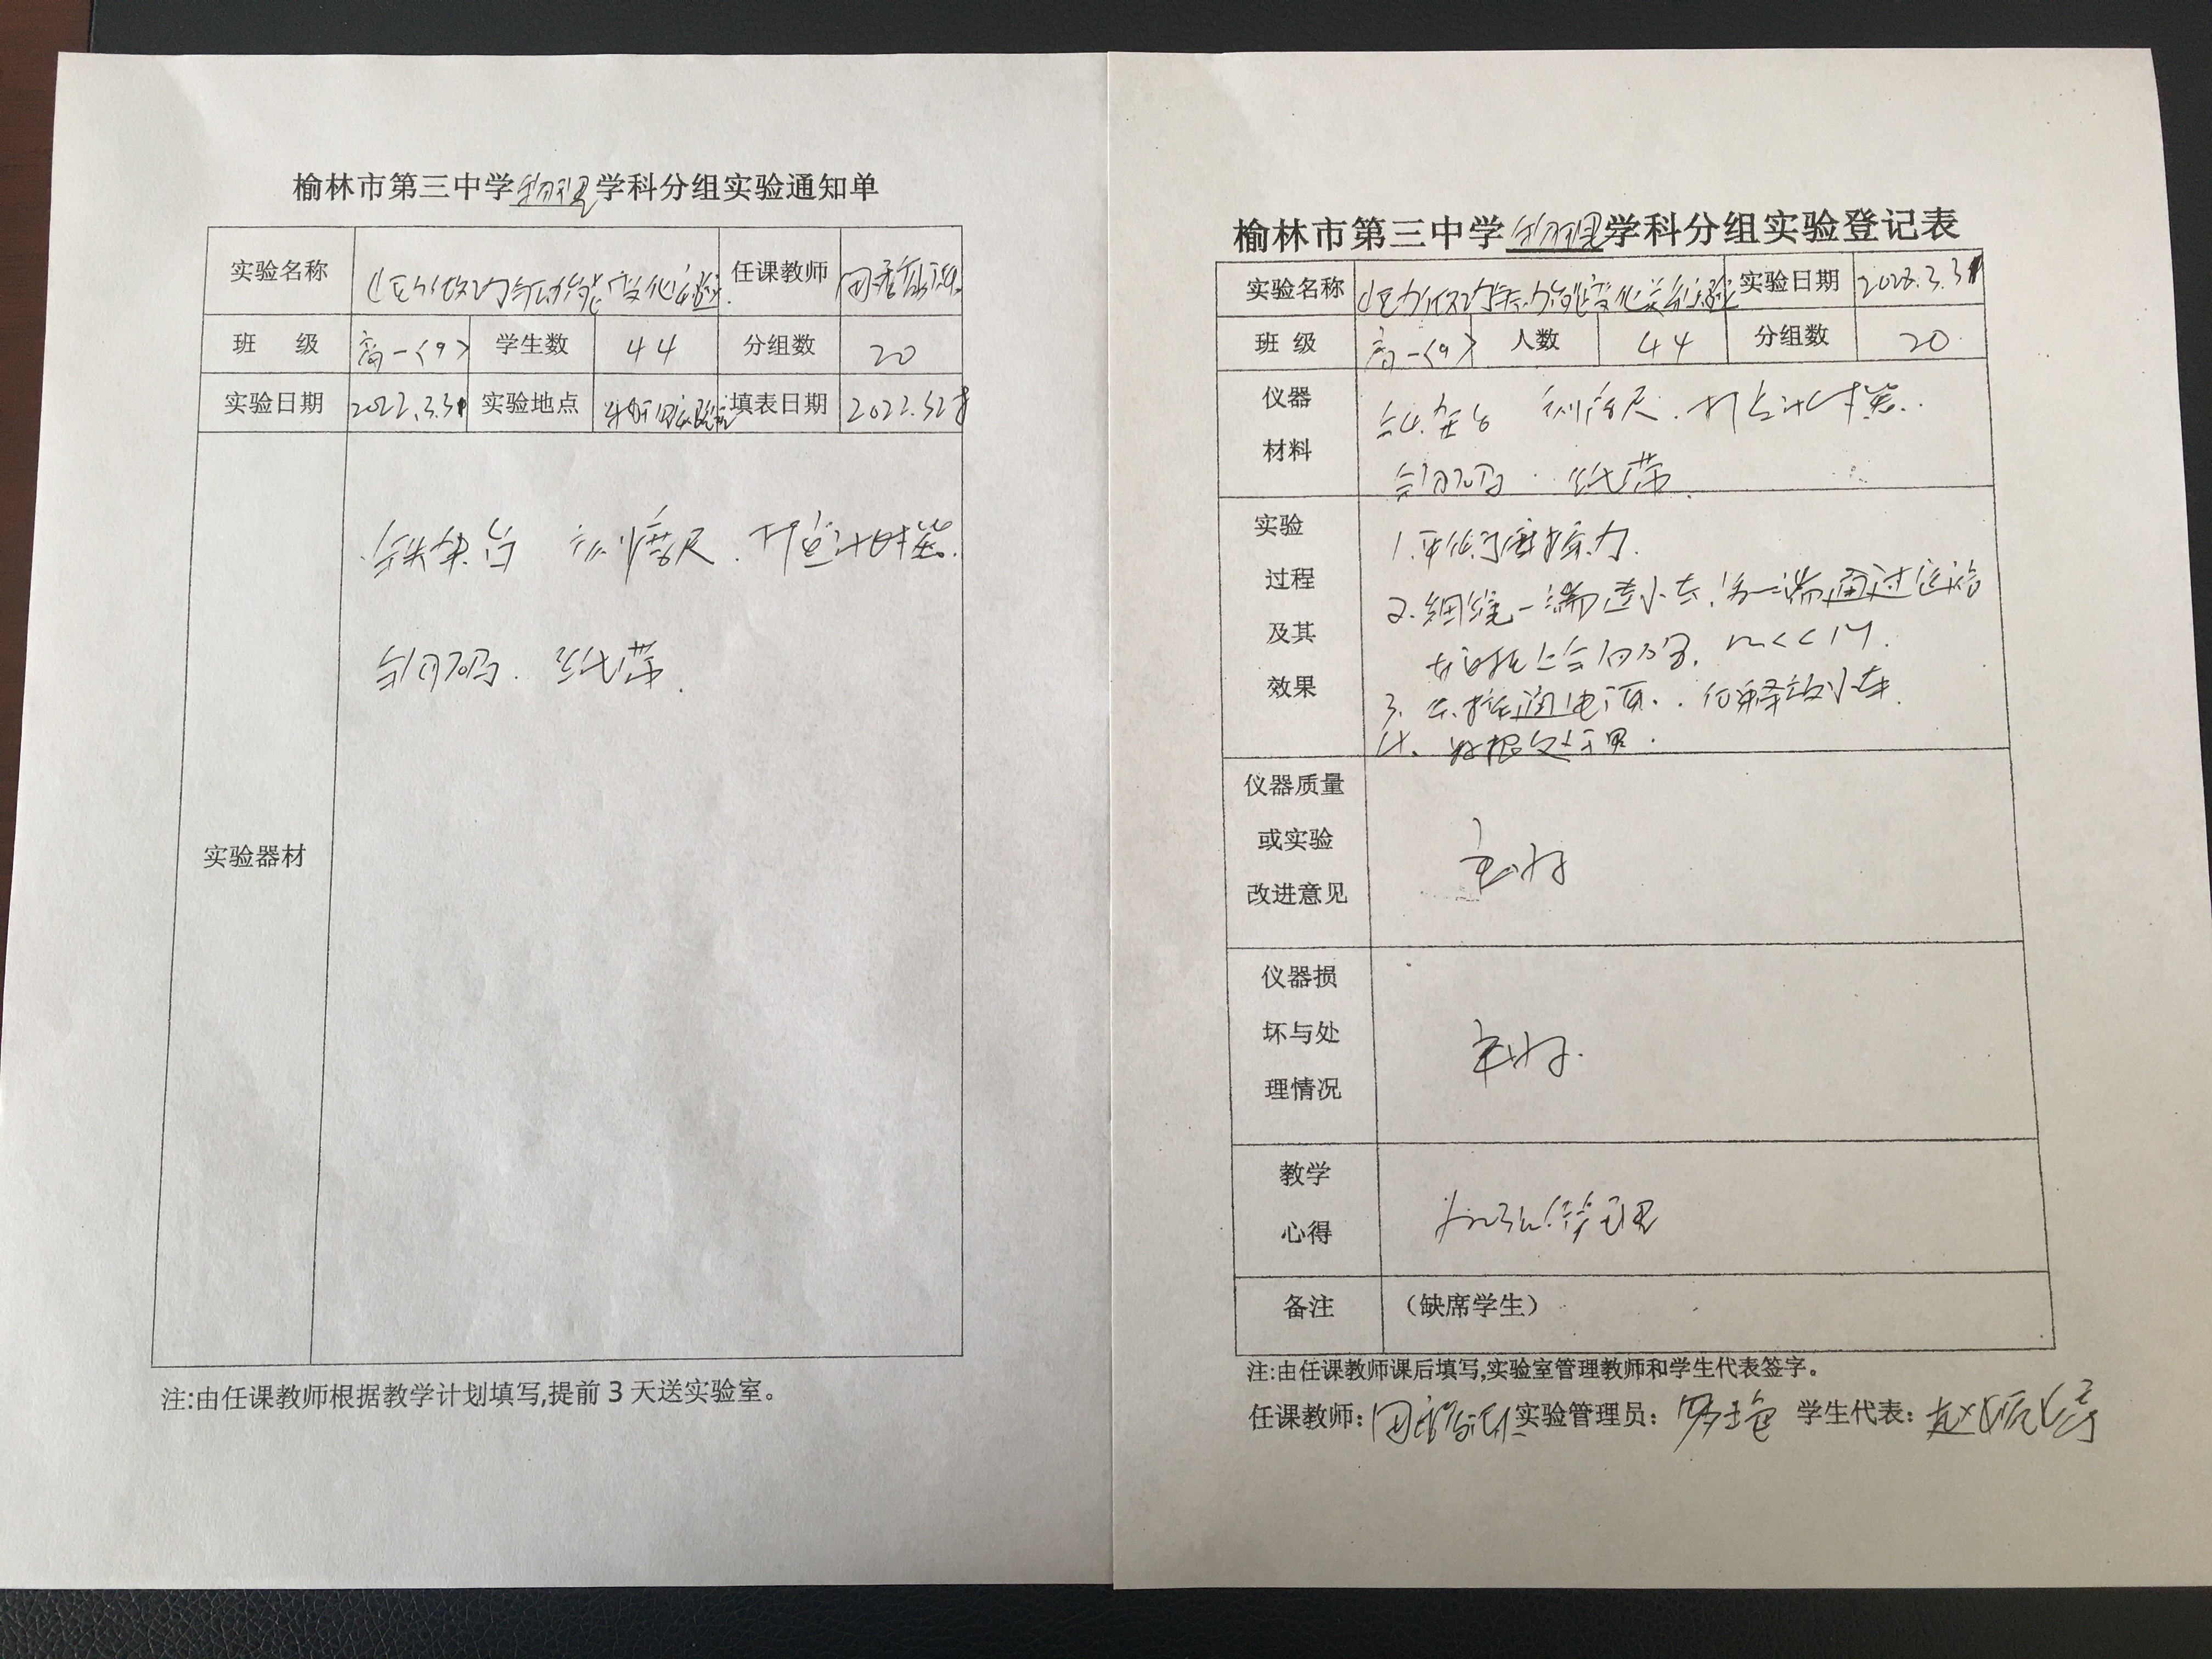 榆林市第三中学物理学科分组实验通知单
实验名称 恒力做功与动能变化实验 任课教师
班 级 高一<9> 学生数 44 分组数 20
实验日期 2022.3.31 实验地点 物理实验室 填表日期 2022.3.28
实验器材
铁架台 刻度尺. 打点计时器.
钩码. 纸带.
注:由任课教师根据教学计划填写,提前3天送实验室。
榆林市第三中学物理学科分组实验登记表
实验名称 恒力做功与动能变化关系实验 实验日期 2022.3.31
班 级 高一<9> 人数 44 分组数 20
仪器
材料
铁架台 刻度尺. 打点计时器.
钩码 纸带.
实验
过程
及其
效果
1.平衡摩擦力.
2.细绳一端连小车,另一端通过定滑
挂上钩码, m<<M.
3. 先接通电源. 后释放小车.
4. 数据处理.
仪器质量
或实验
改进意见
完好
仪器损
坏与处
理情况
完好.
教学
心得
加强管理
备注 (缺席学生)
注:由任课教师课后填写,实验室管理教师和学生代表签字。
任课教师: 实验管理员: 学生代表: